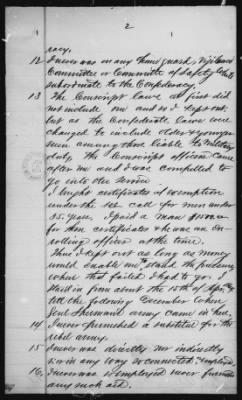 2
racy.
12 I never was on any home guard, Vigilance
Committee or Committee of Safety &c
subordinate to the Confederacy.
13 The Conscript laws at first did
not include me and so I kept out
but as the Confederate laws were
changed to include older & younger
men among those liable to Military
duty the Conscript officers came
after me and I was compelled to
go into the service
I bought certificates of exemption
under the call for men under
35 years. I paid a man
for these certificates who was an en-
rolling officer at the time.
Thus I kept out as long as money
would enable me to and
when that failed I had to go. I
staid in from about the 15th of
till the following December when
Genl Sherman's army came in here,
14 I never furnished a substitute for the
rebel army.
15 I never was directly nor indirectly
or in any way so connected
16 I never was so employed nor furnished
any such aid.